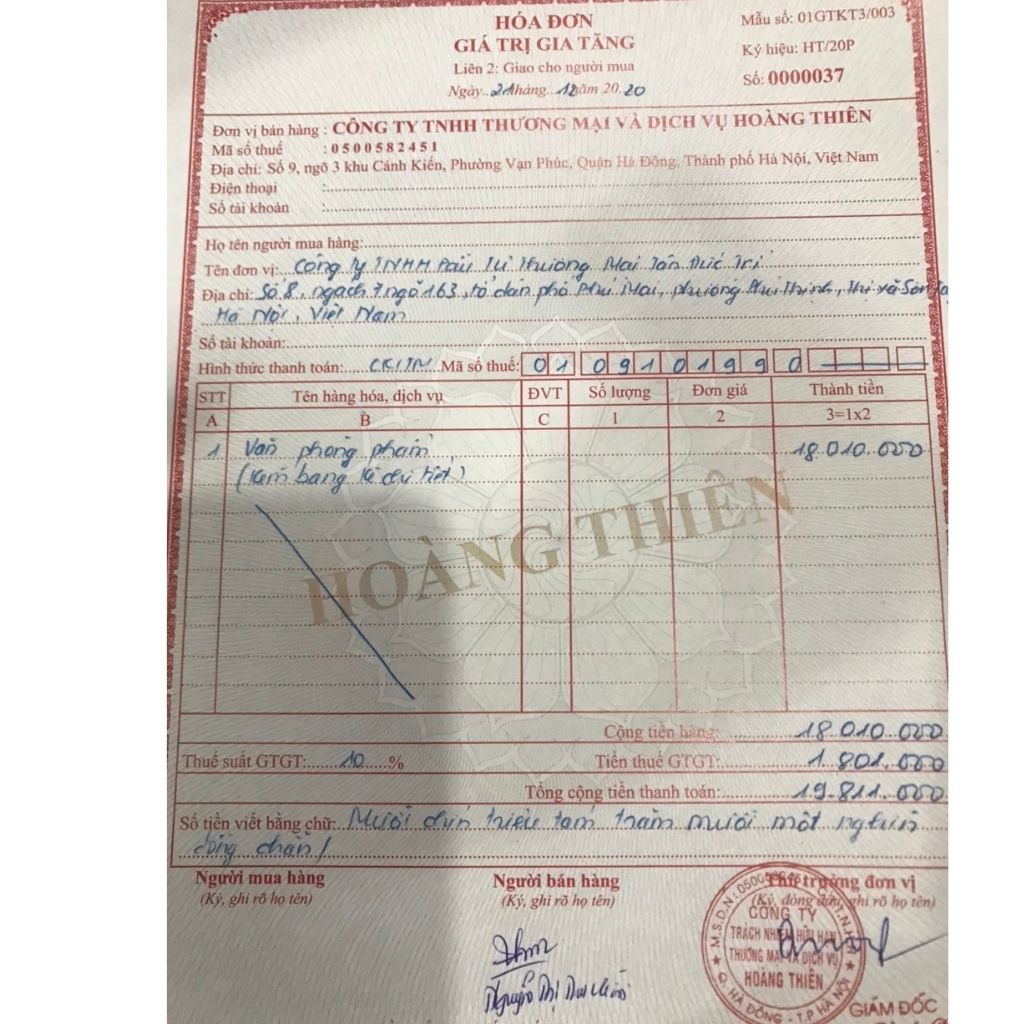 HÓA ĐƠN
GIÁ TRỊ GIA TĂNG
Liên 2: Giao cho người mua
Ngày..21tháng...12năm 20.20
Mẫu số: 01GTKT3/003
Ký hiệu: HT/20P
Số: 0000037
Đơn vị bán hàng : CÔNG TY TNHH THƯƠNG MẠI VÀ DỊCH VỤ HOÀNG THIÊN
Mã số thuế : 0500582451
Địa chỉ: Số 9, ngõ 3 khu Cánh Kiến, Phường Vạn Phúc, Quận Hà Đông, Thành phố Hà Nội, Việt Nam
Điện thoại :
Số tài khoản :
Họ tên người mua hàng:
Tên đơn vị: Công ty TNHH Đầu Tư Thương Mại Tân Đức Trí
Địa chỉ: Số 8, ngách 7 ngõ 163, tổ dân phố Phú Mai, phường Phú Thịnh, Thị xã Sơn
Hà Nội, Việt Nam
Số tài khoản:
Hình thức thanh toán: CK/TM Mã số thuế: 01 09101990
STT Tên hàng hóa, dịch vụ ĐVT Số lượng Đơn giá Thành tiền
A B C 1 2 3=1x2
1 Văn phòng phẩm 18.010.000
(kèm bảng kê chi tiết)
HOÀNG THIÊN
Cộng tiền hàng: 18.010.000
Thuế suất GTGT: 10 % Tiền thuế GTGT: 1.801.000
Tổng cộng tiền thanh toán: 19.811.000
Số tiền viết bằng chữ: Mười chín triệu tám trăm mười một nghìn
đồng chẵn/
Người mua hàng Người bán hàng Thủ trưởng đơn vị
(Ký, ghi rõ họ tên) (Ký, ghi rõ họ tên) (Ký, đóng dấu, ghi rõ họ tên)
CÔNG TY
TRÁCH NHIỆM HỮU HẠN
THƯƠNG MẠI VÀ DỊCH VỤ
HOÀNG THIÊN
Q. HÀ ĐÔNG - T.P HÀ NỘI
Nguyễn Thị
GIÁM ĐỐC